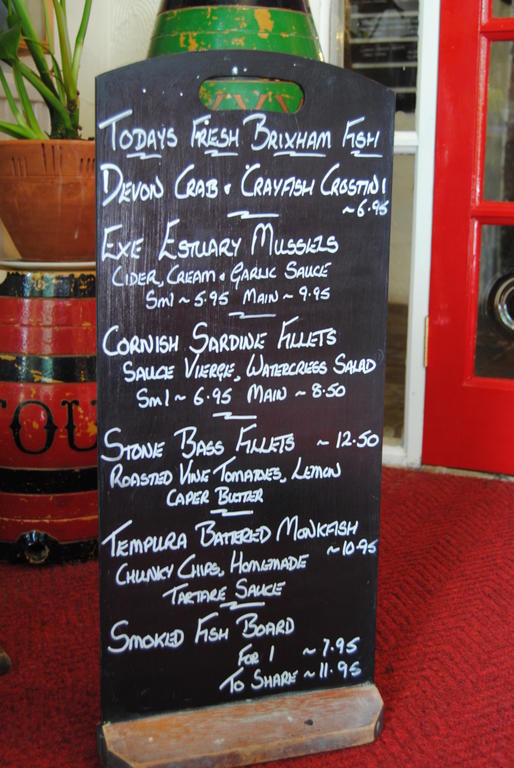 TODAYS FRESH BRIXHAM FISH
DEVON CRAB & CRAYFISH CROSTINI
~6.95
EXE ESTUARY MUSSELS
CIDER, CREAM & GARLIC SAUCE
SMl ~ 5.95 MAIN ~ 9.95
CORNISH SARDINE FILLETS
SAUCE VIERGE, WATERCRESS SALAD
SMl ~ 6.95 MAIN ~ 8.50
STONE BASS FILLETS ~ 12.50
ROASTED VINE TOMATOES, LEMON
CAPER BUTTER
TEMPURA BATTERED MONKFISH
~10.95
CHUNKY CHIPS, HOMEMADE
TARTARE SAUCE
SMOKED FISH BOARD
FOR 1 ~ 7.95
TO SHARE ~ 11.95
TOU